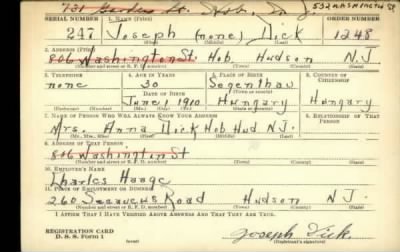 731 Garden St. Hob. N. J. 532 WASHINGTON ST.
SERIAL NUMBER 1. NAME (Print) ORDER NUMBER
247 Joseph (none) Dick 1248
(First) (Middle) (Last)
2. ADDRESS (Print)
806 Washington St. Hob. Hudson N.J.
(Number and street or R. F. D. number) (Town) (County) (State)
3. TELEPHONE 4. AGE IN YEARS 5. PLACE OF BIRTH 6. COUNTRY OF CITIZENSHIP
none 30 Segenthau
DATE OF BIRTH (Town or county)
June 1 1910 Hungary Hungary
(Exchange) (Number) (Mo.) (Day) (Yr.) (State or country)
7. NAME OF PERSON WHO WILL ALWAYS KNOW YOUR ADDRESS 8. RELATIONSHIP OF THAT PERSON
Mrs. Anna Dick Hob Hud N.J.
(Mr., Mrs., Miss) (First) (Middle) (Last)
9. ADDRESS OF THAT PERSON
806 Washington St
(Number and street or R. F. D. number) (Town) (County) (State)
10. EMPLOYER'S NAME
Charles Haage
11. PLACE OF EMPLOYMENT OR BUSINESS
260 Secaucus Road Hudson N.J.
(Number and street or R. F. D. number) (Town) (County) (State)
I AFFIRM THAT I HAVE VERIFIED ABOVE ANSWERS AND THAT THEY ARE TRUE.
REGISTRATION CARD
D. S. S. Form 1 Joseph Dick
(Registrant's signature)